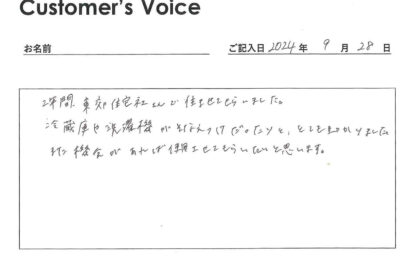 Customer's Voice
お名前 ご記入日 2024年 9月 28日
2年間、東郊住宅社さんで住ませてもらいました。
冷蔵庫や洗濯機がそなえつけだったので、とても助かりました
また機会があれば使用させてもらいたいと思います。